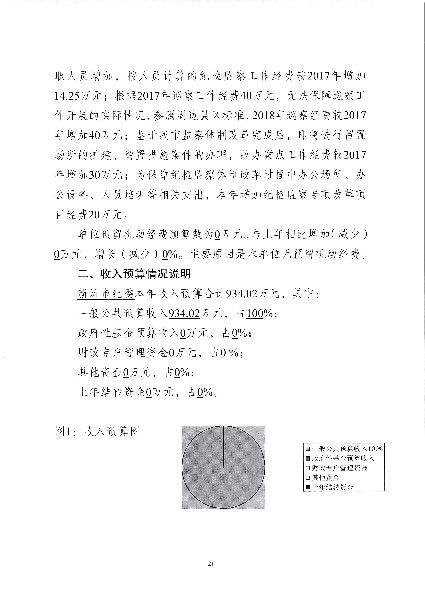 职人员增加，按人员计算的纪检监察工作经费较2017年增加
14.25万元；根据2017年巡察工作经费40万元，无法保障巡察工
作开展的实际情况，参照周边县区标准，2018年巡察经费较2017
年增加40万元；基于我市监察体制改革完成后，即将进行留置
场所的 留置措施案件的办理，故办案点工作经费较2017
年增加30万元；为保障纪检监察体制改革过程中办公场所、办
公设备、人员培训等相关支出，本年增加纪检监察专项改革项
目经费20万元。
单位预留机动经费预算数为0万元，与上年相比增加（减少）
0万元，增长（减少）0%。主要原因是本单位无预留机动经费。
二、收入预算情况说明
市纪委本年收入预算合计934.02万元，其中：
一般公共预算收入934.02万元，占100%；
政府性基金预算收入0万元，占0%；
财政专户管理资金0万元，占0%；
其他资金0万元，占0%；
上年结转资金0万元，占0%。
图1：收入预算图
一般公共预算收入100%
政府性基金预算收入
财政专户管理资金
其他资金
上年结转资金